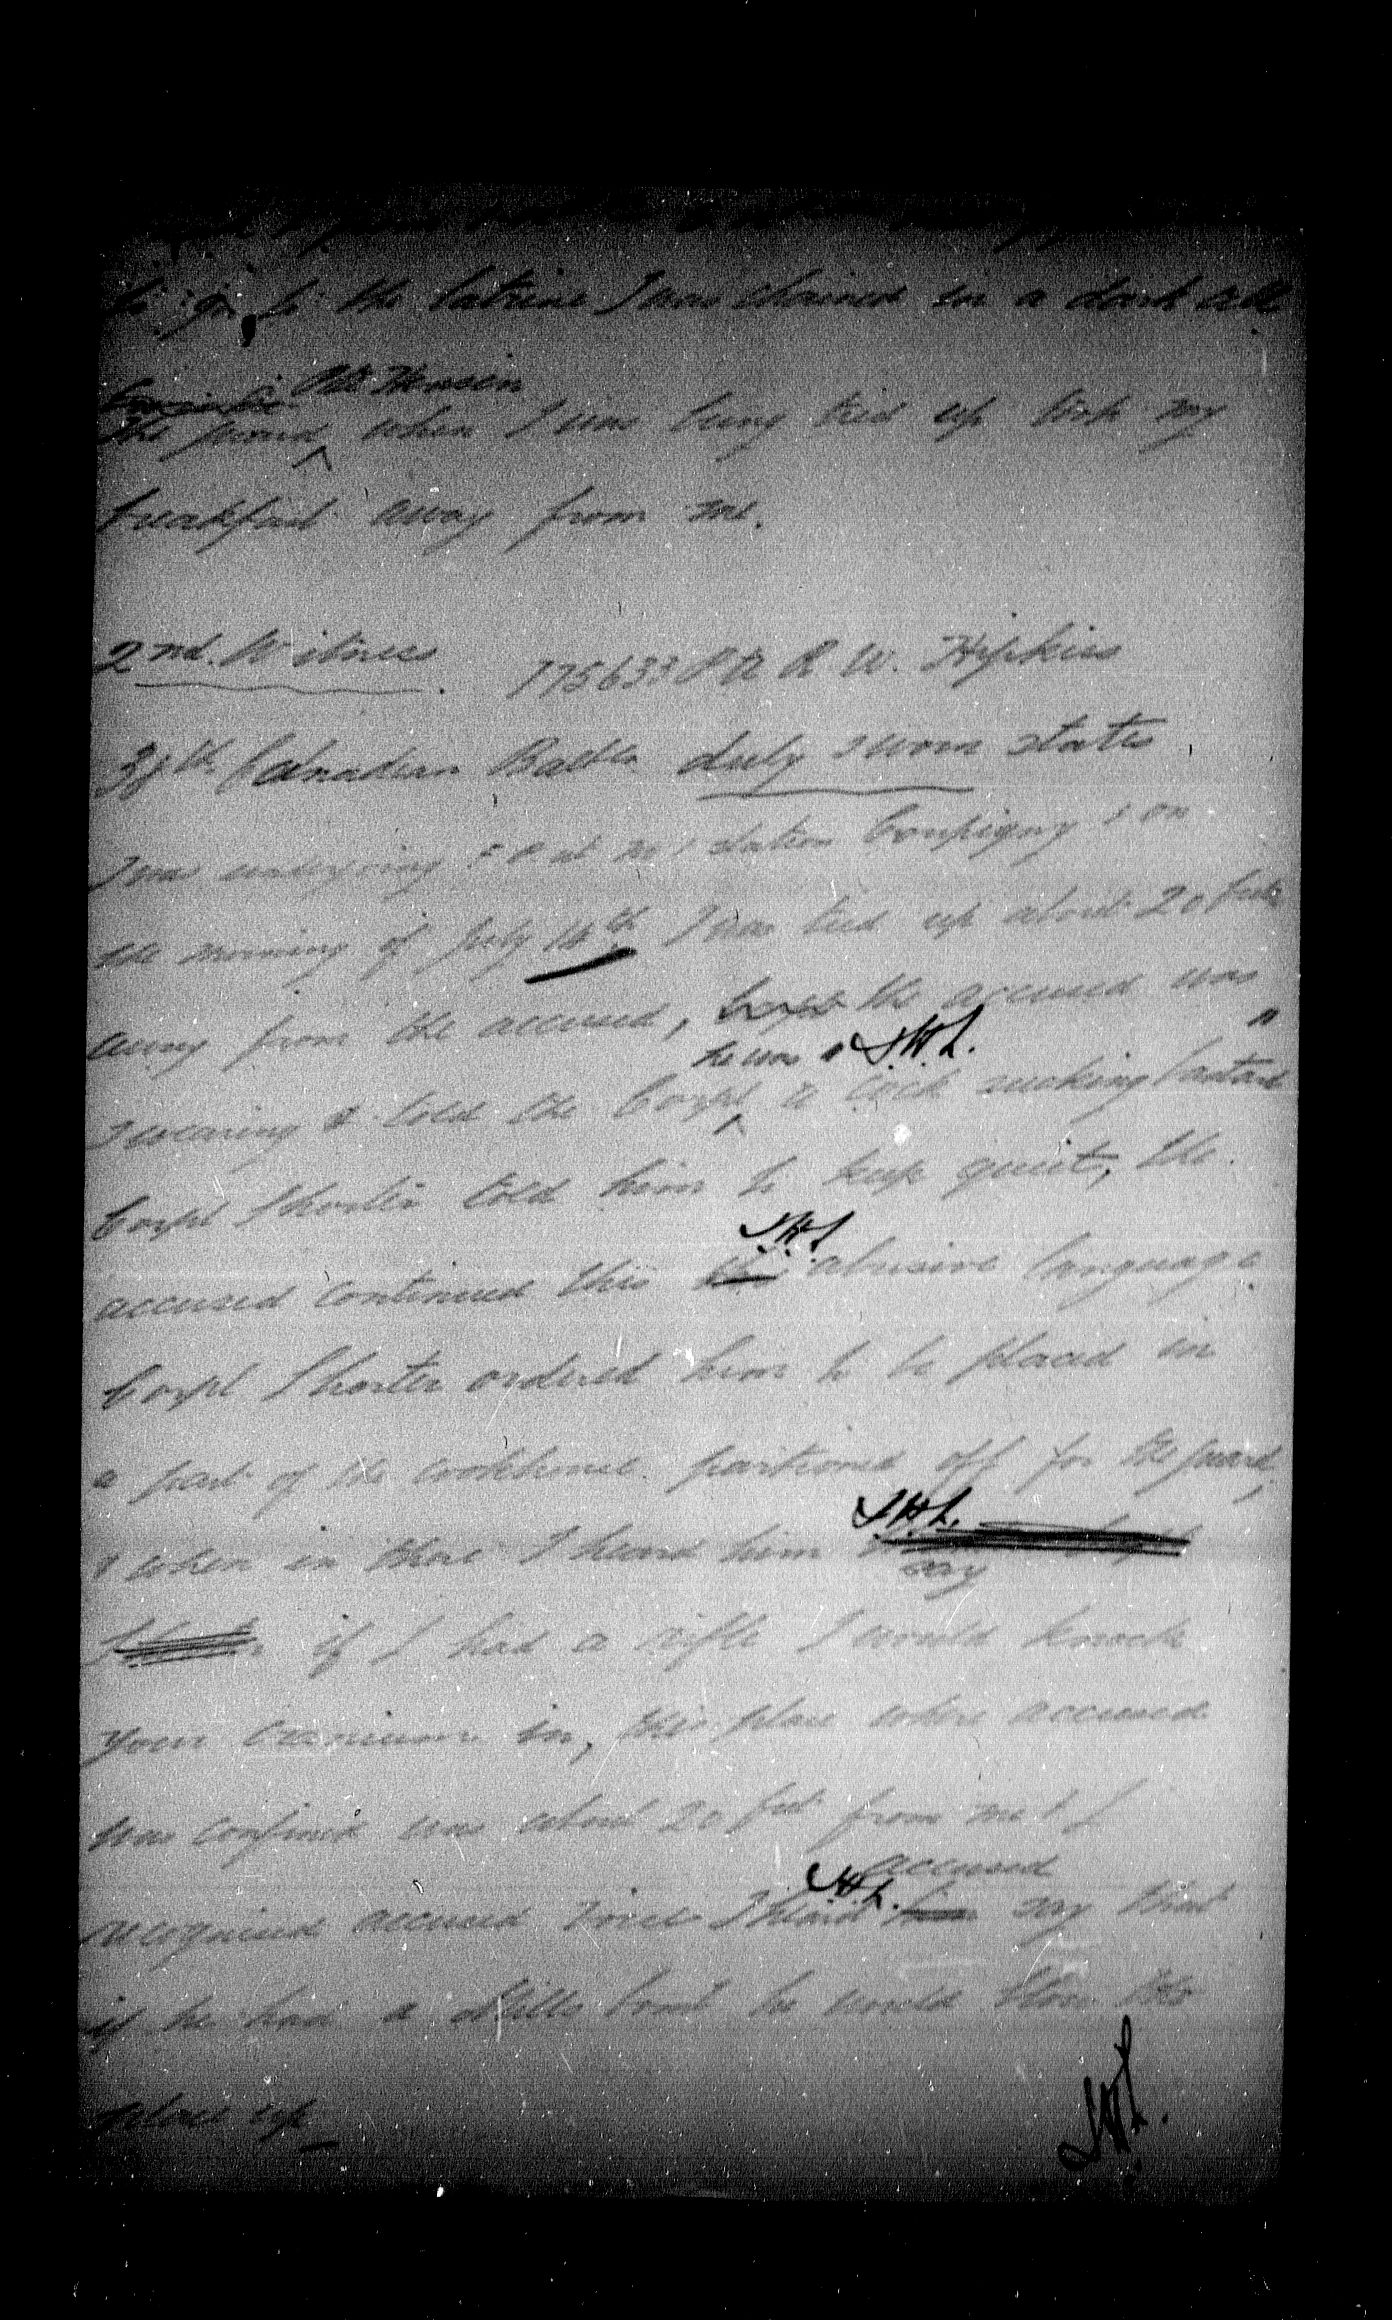 to go to the latrine I was chained in a dark cell
Pte Hensen
The guard when I was being tied up took my
breakfast away from me.
2nd. Witness. 175633 Pte R W. Hipkins
38th Canadian Battn duly sworn states
I was undergoing F P at No 1 station Compigny & on
the morning of July 14th I was tied up about 20 feet
away from the accused, the accused was
he was a S.H.L.
swearing & told the Corpl a cock sucking bastard
Corpl Shorter told him to keep quiet, the
S.H.L
accused continued this abusive language
Corpl Shorter ordered him to be placed in
a part of the cookhouse partioned off for the guard,
S.H.L.
& when in there I heard him say
if I had a rifle I would knock
your cranium in, this place where accused
was confined was about 20 feet from me & I
S.H.L. accused
recognised accused voice I heard him say that
if he had a Mills bomb he would blow the
place up
S.H.L.